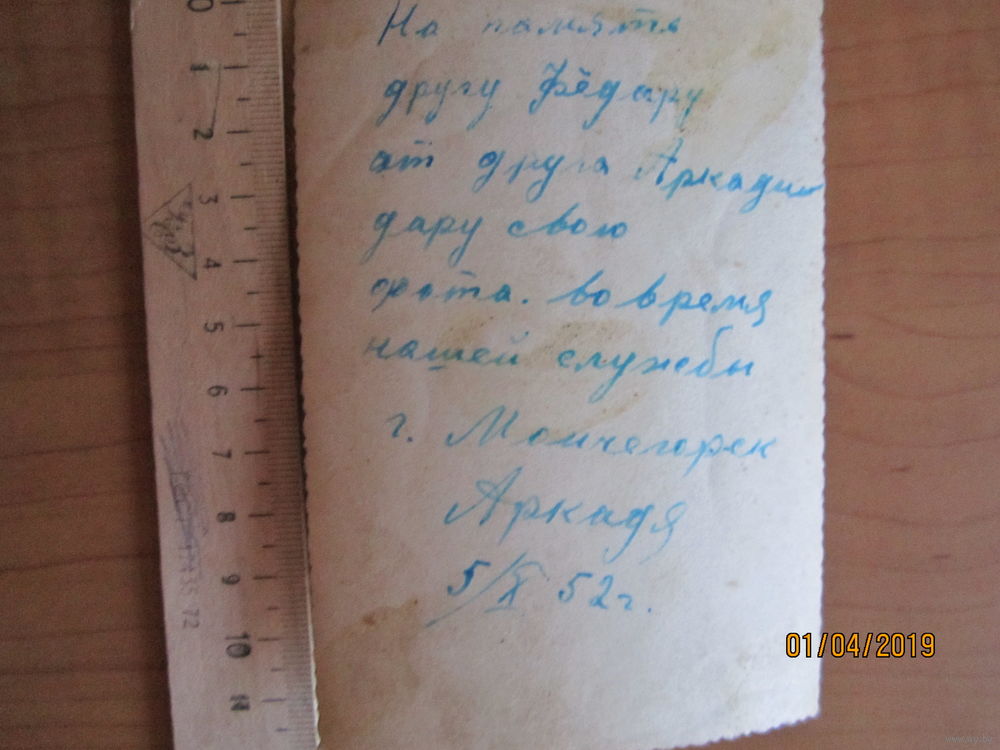 На память
другу Фёдару
от друга Аркадия
дару свою
фота. во время
нашей службы
г. Мончегорск
Аркадя
5/X 52г.
01/04/2019
0
1
2
3
4
5
6
7
8
9
10
11